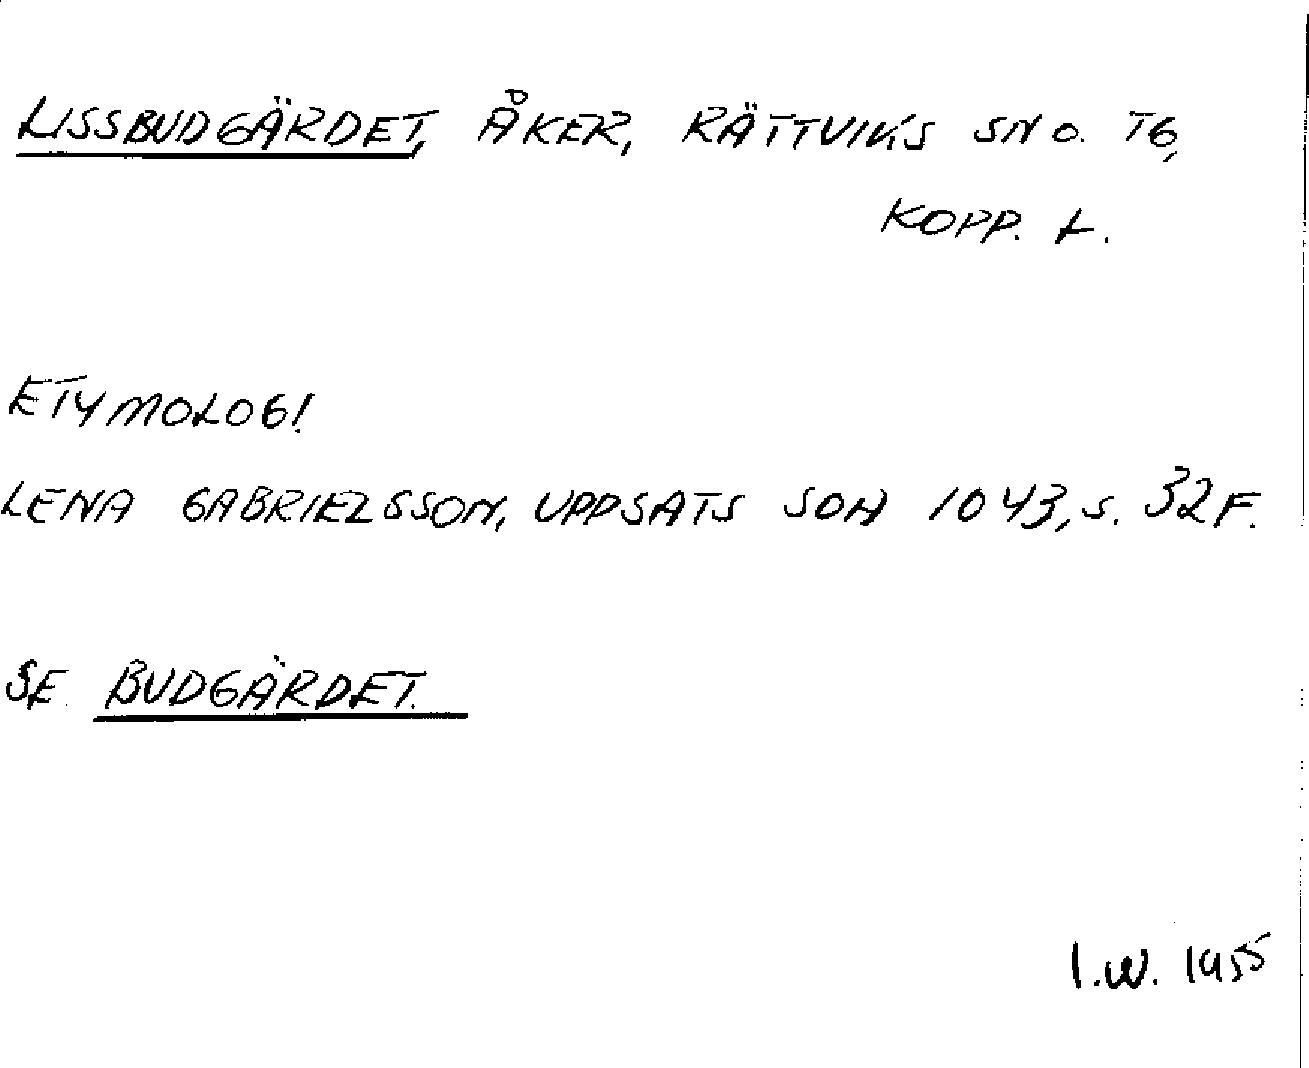 LISSBUDGÄRDET, ÅKER, RÄTTVIKS SN O. TG,
KOPP. L.
ETYMOLOGI
LENA GABRIELSSON, UPPSATS SOM 1043, S. 32 F.
SE BUDGÄRDET.
I.W. 1955